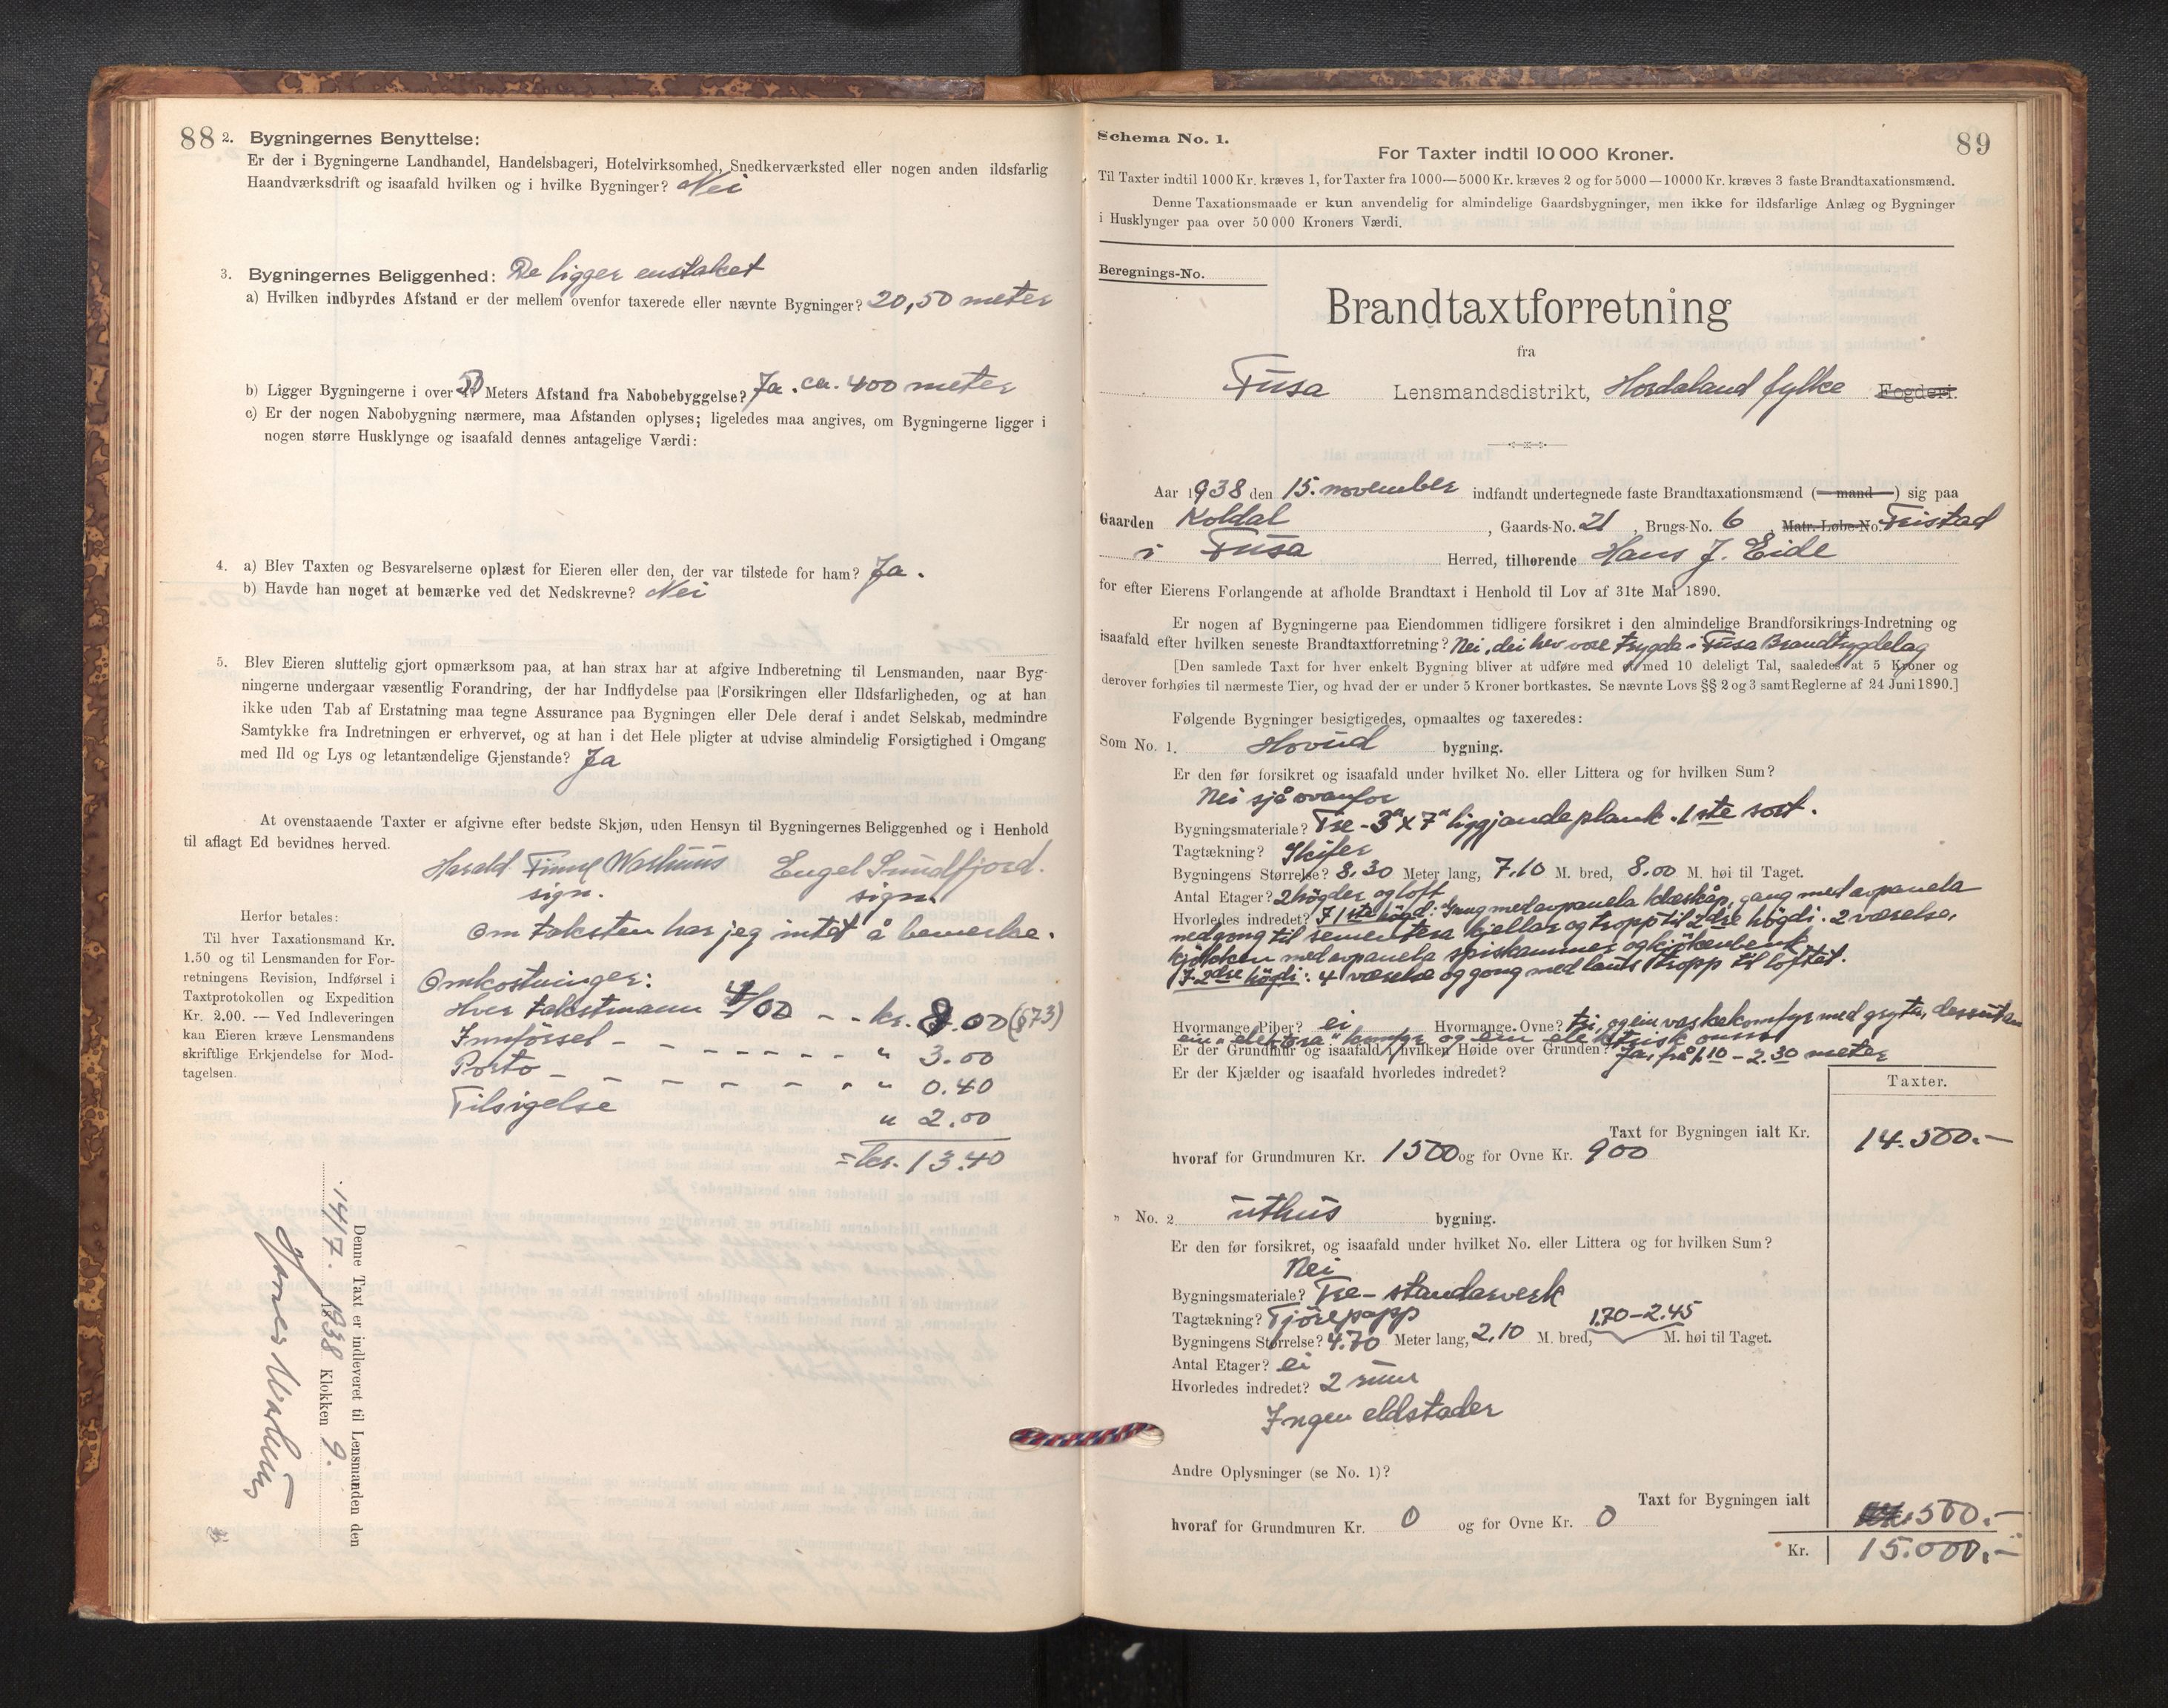 88
2. Bygningernes Benyttelse:
Er der i Bygningerne Landhandel, Handelsbageri, Hotelvirksomhed, Snedkerværksted eller nogen anden ildsfarlig
Haandværksdrift og isaafald hvilken og i hvilke Bygninger? Nei
3. Bygningernes Beliggenhed: De ligger enstaket
a) Hvilken indbyrdes Afstand er der mellem ovenfor taxerede eller nævnte Bygninger? 20,50 meter
b) Ligger Bygningerne i over 50 Meters Afstand fra Nabobebyggelse? Ja. ca. 400 meter
c) Er der nogen Nabobygning nærmere, maa Afstanden oplyses; ligeledes maa angives, om Bygningerne ligger i
nogen større Husklynge og isaafald dennes antagelige Værdi:
4. a) Blev Taxten og Besvarelserne oplæst for Eieren eller den, der var tilstede for ham? Ja.
b) Havde han noget at bemærke ved det Nedskrevne? Nei
5. Blev Eieren sluttelig gjort opmærksom paa, at han strax har at afgive Indberetning til Lensmanden, naar Byg-
ningerne undergaar væsentlig Forandring, der har Indflydelse paa Forsikringen eller Ildsfarligheden, og at han
ikke uden Tab af Erstatning maa tegne Assurance paa Bygningen eller Dele deraf i andet Selskab, medmindre
Samtykke fra Indretningen er erhvervet, og at han i det Hele pligter at udvise almindelig Forsigtighed i Omgang
med Ild og Lys og letantændelige Gjenstande? Ja
At ovenstaaende Taxter er afgivne efter bedste Skjøn, uden Hensyn til Bygningernes Beliggenhed og i Henhold
til aflagt Ed bevidnes herved.
Harald Finne Warhuus Engel Sundfjord.
sign. sign.
Herfor betales:
Til hver Taxationsmand Kr.
1.50 og til Lensmanden for For-
retningens Revision, Indførsel i
Taxtprotokollen og Expedition
Kr. 2.00. — Ved Indleveringen
kan Eieren kræve Lensmandens
skriftlige Erkjendelse for Mod-
tagelsen.
Om taksten har jeg intet å bemerke.
Omkostninger:
Hver takstmann 4/00 - - kr. 8.00 (§73)
Innførsel - - - - - - - " 3.00
Porto - - - - - - - " 0.40
Tilsigelse " 2.00
= kr. 13.40
Denne Taxt er indleveret til Lensmanden den
14/7. 1938 Klokken 9.
89
Schema No. 1.
For Taxter indtil 10 000 Kroner.
Til Taxter indtil 1000 Kr. kræves 1, for Taxter fra 1000—5000 Kr. kræves 2 og for 5000—10000 Kr. kræves 3 faste Brandtaxationsmænd.
Denne Taxationsmaade er kun anvendelig for almindelige Gaardsbygninger, men ikke for ildsfarlige Anlæg og Bygninger
i Husklynger paa over 50 000 Kroners Værdi.
Beregnings-No.
Brandtaxtforretning
fra
Fusa Lensmandsdistrikt, Hordaland fylke Fogderi.
Aar 1938 den 15. november indfandt undertegnede faste Brandtaxationsmænd (— mand —) sig paa
Gaarden Koldal, Gaards-No. 21, Brugs-No. 6, Matr.-Løbe-No. Feistad
i Fusa Herred, tilhørende Hans J. Eide
for efter Eierens Forlangende at afholde Brandtaxt i Henhold til Lov af 31te Mai 1890.
Er nogen af Bygningerne paa Eiendommen tidligere forsikret i den almindelige Brandforsikrings-Indretning og
isaafald efter hvilken seneste Brandtaxtforretning? Nei, dei hev vore trygda i Fusa Brandtrygdelag
[Den samlede Taxt for hver enkelt Bygning bliver at udføre med et med 10 deleligt Tal, saaledes at 5 Kroner og
derover forhøies til nærmeste Tier, og hvad der er under 5 Kroner bortkastes. Se nævnte Lovs §§ 2 og 3 samt Reglerne af 24 Juni 1890.]
Følgende Bygninger besigtigedes, opmaaltes og taxeredes:
Som No. 1. Hovud bygning.
Er den før forsikret og isaafald under hvilket No. eller Littera og for hvilken Sum?
Nei sjå ovanfor
Bygningsmateriale? Tre - 3" x 7" liggjande plank. 1ste sort.
Tagtækning? Skifer
Bygningens Størrelse? 8.30 Meter lang, 7.10 M. bred, 8.00 M. høi til Taget.
Antal Etager? 2 högder og loft
Hvorledes indredet? I 1ste högd: Gang med avpanela klæskåp, gang med avpanela
nedgong til sementera kjellar og tropp til 2dre högdi. 2 værelse,
kjökken med avpanela spiskammer og kjökenbenk
I 2dre högdi: 4 værelse og gong med lauss tropp til loftet.
Hvormange Piber? ei Hvormange Ovne? tri, og ein vaskekomfyr med gryta, dessutan
ein " komfyr og ein elektrisk omn
Er der Grundmur og isaafald i hvilken Høide over Grunden? Ja, frå 1.10 - 2.30 meter
Er der Kjælder og isaafald hvorledes indredet?
Taxter.
Taxt for Bygningen ialt Kr. 14.500.-
hvoraf for Grundmuren Kr. 1500 og for Ovne Kr. 900
" No. 2 uthus bygning.
Er den før forsikret, og isaafald under hvilket No. eller Littera og for hvilken Sum?
Nei
Bygningsmateriale? Tre - standarverk
Tagtækning? Tjörepapp
Bygningens Størrelse? 4.70 Meter lang, 2.10 M. bred, 1.70-2.45 M. høi til Taget.
Antal Etager? ei
Hvorledes indredet? 2 rum
Ingen eldstader
Andre Oplysninger (se No. 1)?
Taxt for Bygningen ialt 500.-
hvoraf for Grundmuren Kr. 0 og for Ovne Kr. 0
Kr. 15.000.-